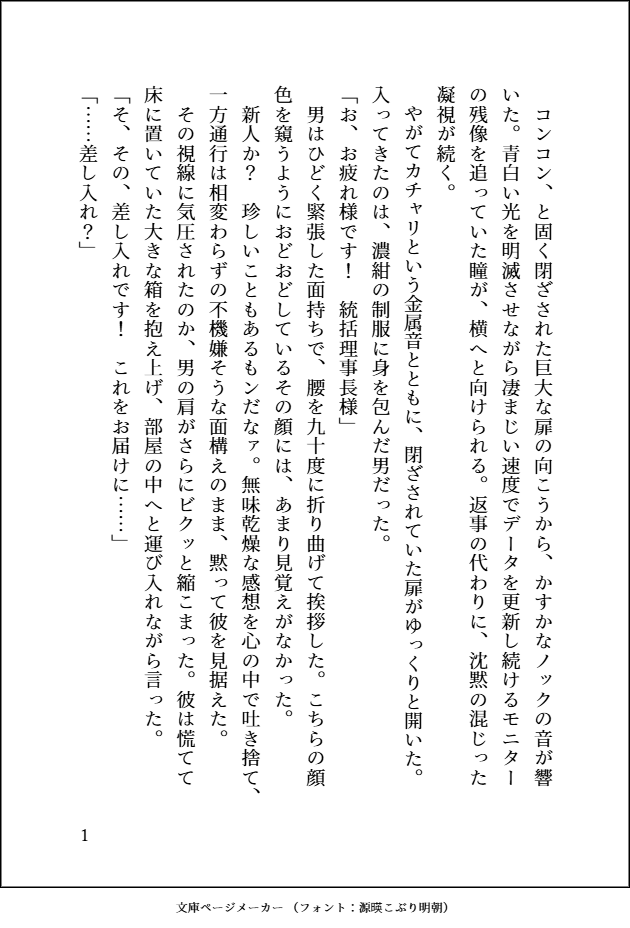 コンコン、と固く閉ざされた巨大な扉の向こうから、かすかなノックの音が響
いた。青白い光を明滅させながら凄まじい速度でデータを更新し続けるモニター
の残像を追っていた瞳が、横へと向けられる。返事の代わりに、沈黙の混じった
凝視が続く。
　やがてカチャリという金属音とともに、閉ざされていた扉がゆっくりと開いた。
入ってきたのは、濃紺の制服に身を包んだ男だった。
「お、お疲れ様です！　統括理事長様」
　男はひどく緊張した面持ちで、腰を九十度に折り曲げて挨拶した。こちらの顔
色を窺うようにおどおどしているその顔には、あまり見覚えがなかった。
　新人か？　珍しいこともあるもンだなァ。無味乾燥な感想を心の中で吐き捨て、
一方通行は相変わらずの不機嫌そうな面構えのまま、黙って彼を見据えた。
　その視線に気圧されたのか、男の肩がさらにビクッと縮こまった。彼は慌てて
床に置いていた大きな箱を抱え上げ、部屋の中へと運び入れながら言った。
「そ、その、差し入れです！　これをお届けに……」
「……差し入れ？」
1
文庫ページメーカー（フォント：源暎こぶり明朝）